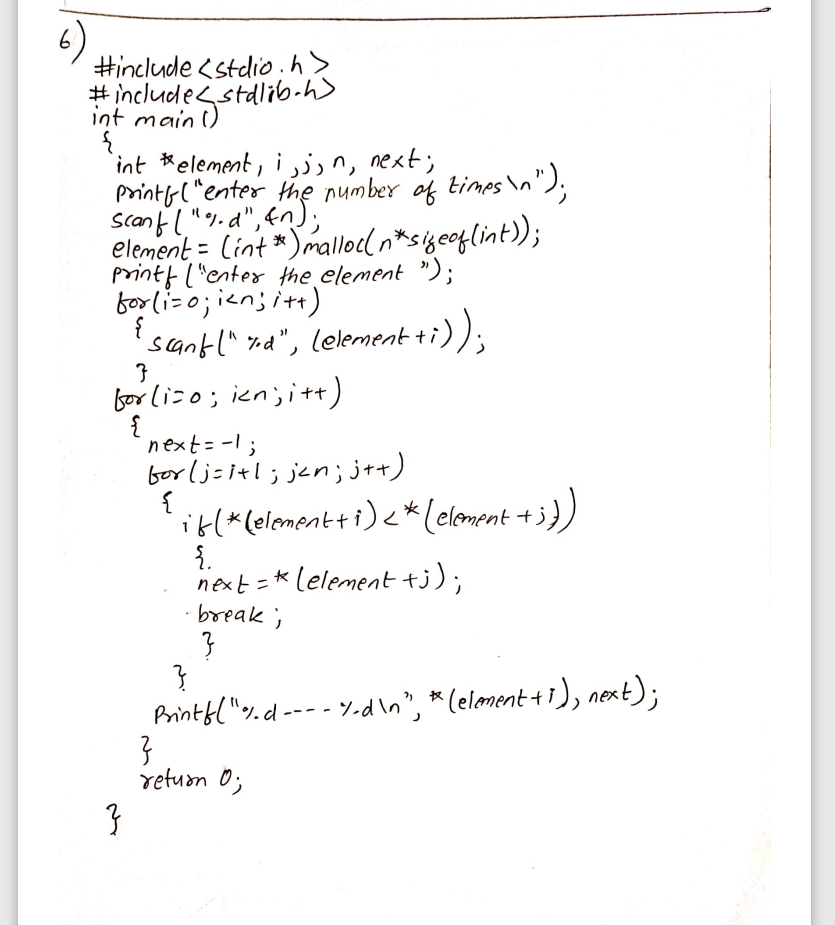 6)
#include<stdio.h>
#include<stdlib.h>
int main()
{
int *element, i,j,n, next;
printf("enter the number of times\n");
scanf("%d",&n);
element = (int*)malloc(n*sizeof(int));
printf("enter the element ");
for(i=0;i<n;i++)
{
scanf("%d", (element+i));
}
for(i=0; i<n;i++)
{
next=-1;
for(j=i+1; j<n; j++)
{
if(*(element+i)<*(element+j))
{
next=*(element+j);
break;
}
}
Printf("%d----%d\n", *(element+i), next);
}
return 0;
}